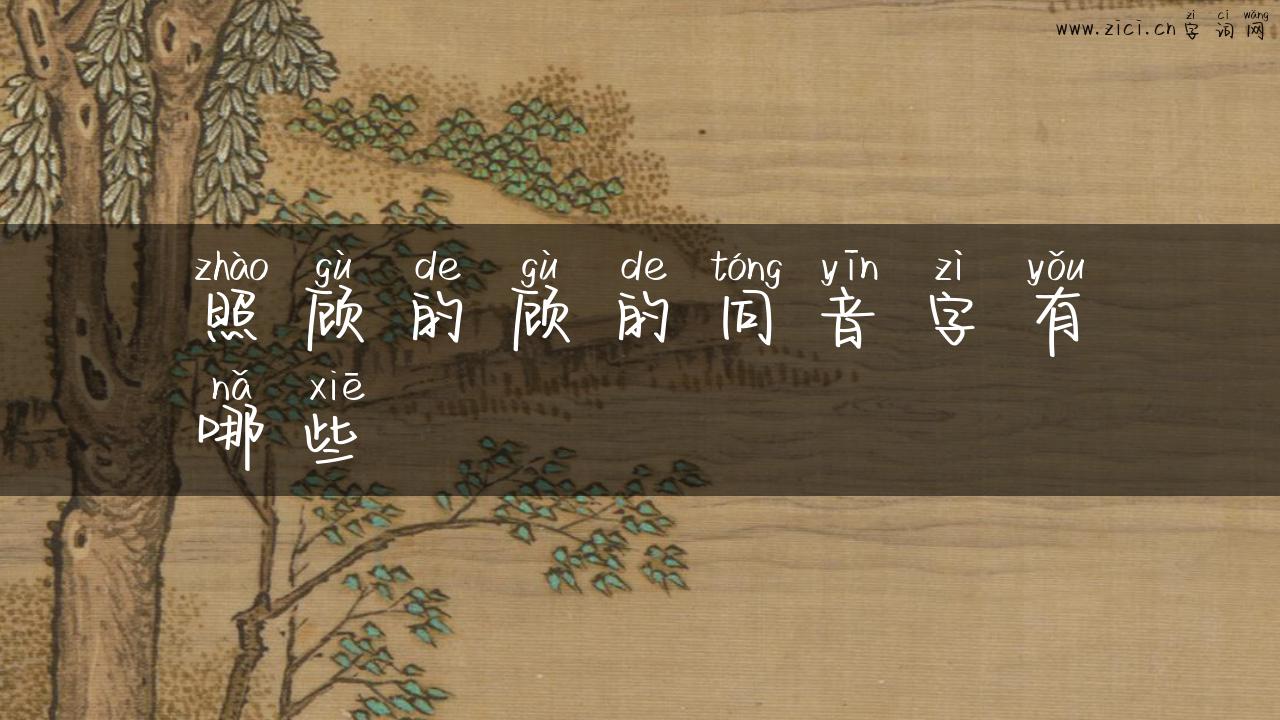 zì cí wǎng
www.zici.cn 字词网
zhào gù de gù de tóng yīn zì yǒu
照顾的顾的同音字有
nǎ xiē
哪些